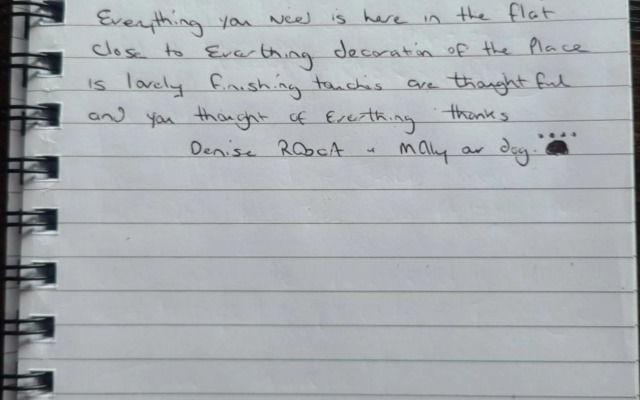 Everything you need is here in the flat
close to Everthing decoration of the Place
is lovely finishing touchis are thoughtful
and you thought of Everthing thanks
Denise RObeA + Molly our dog.